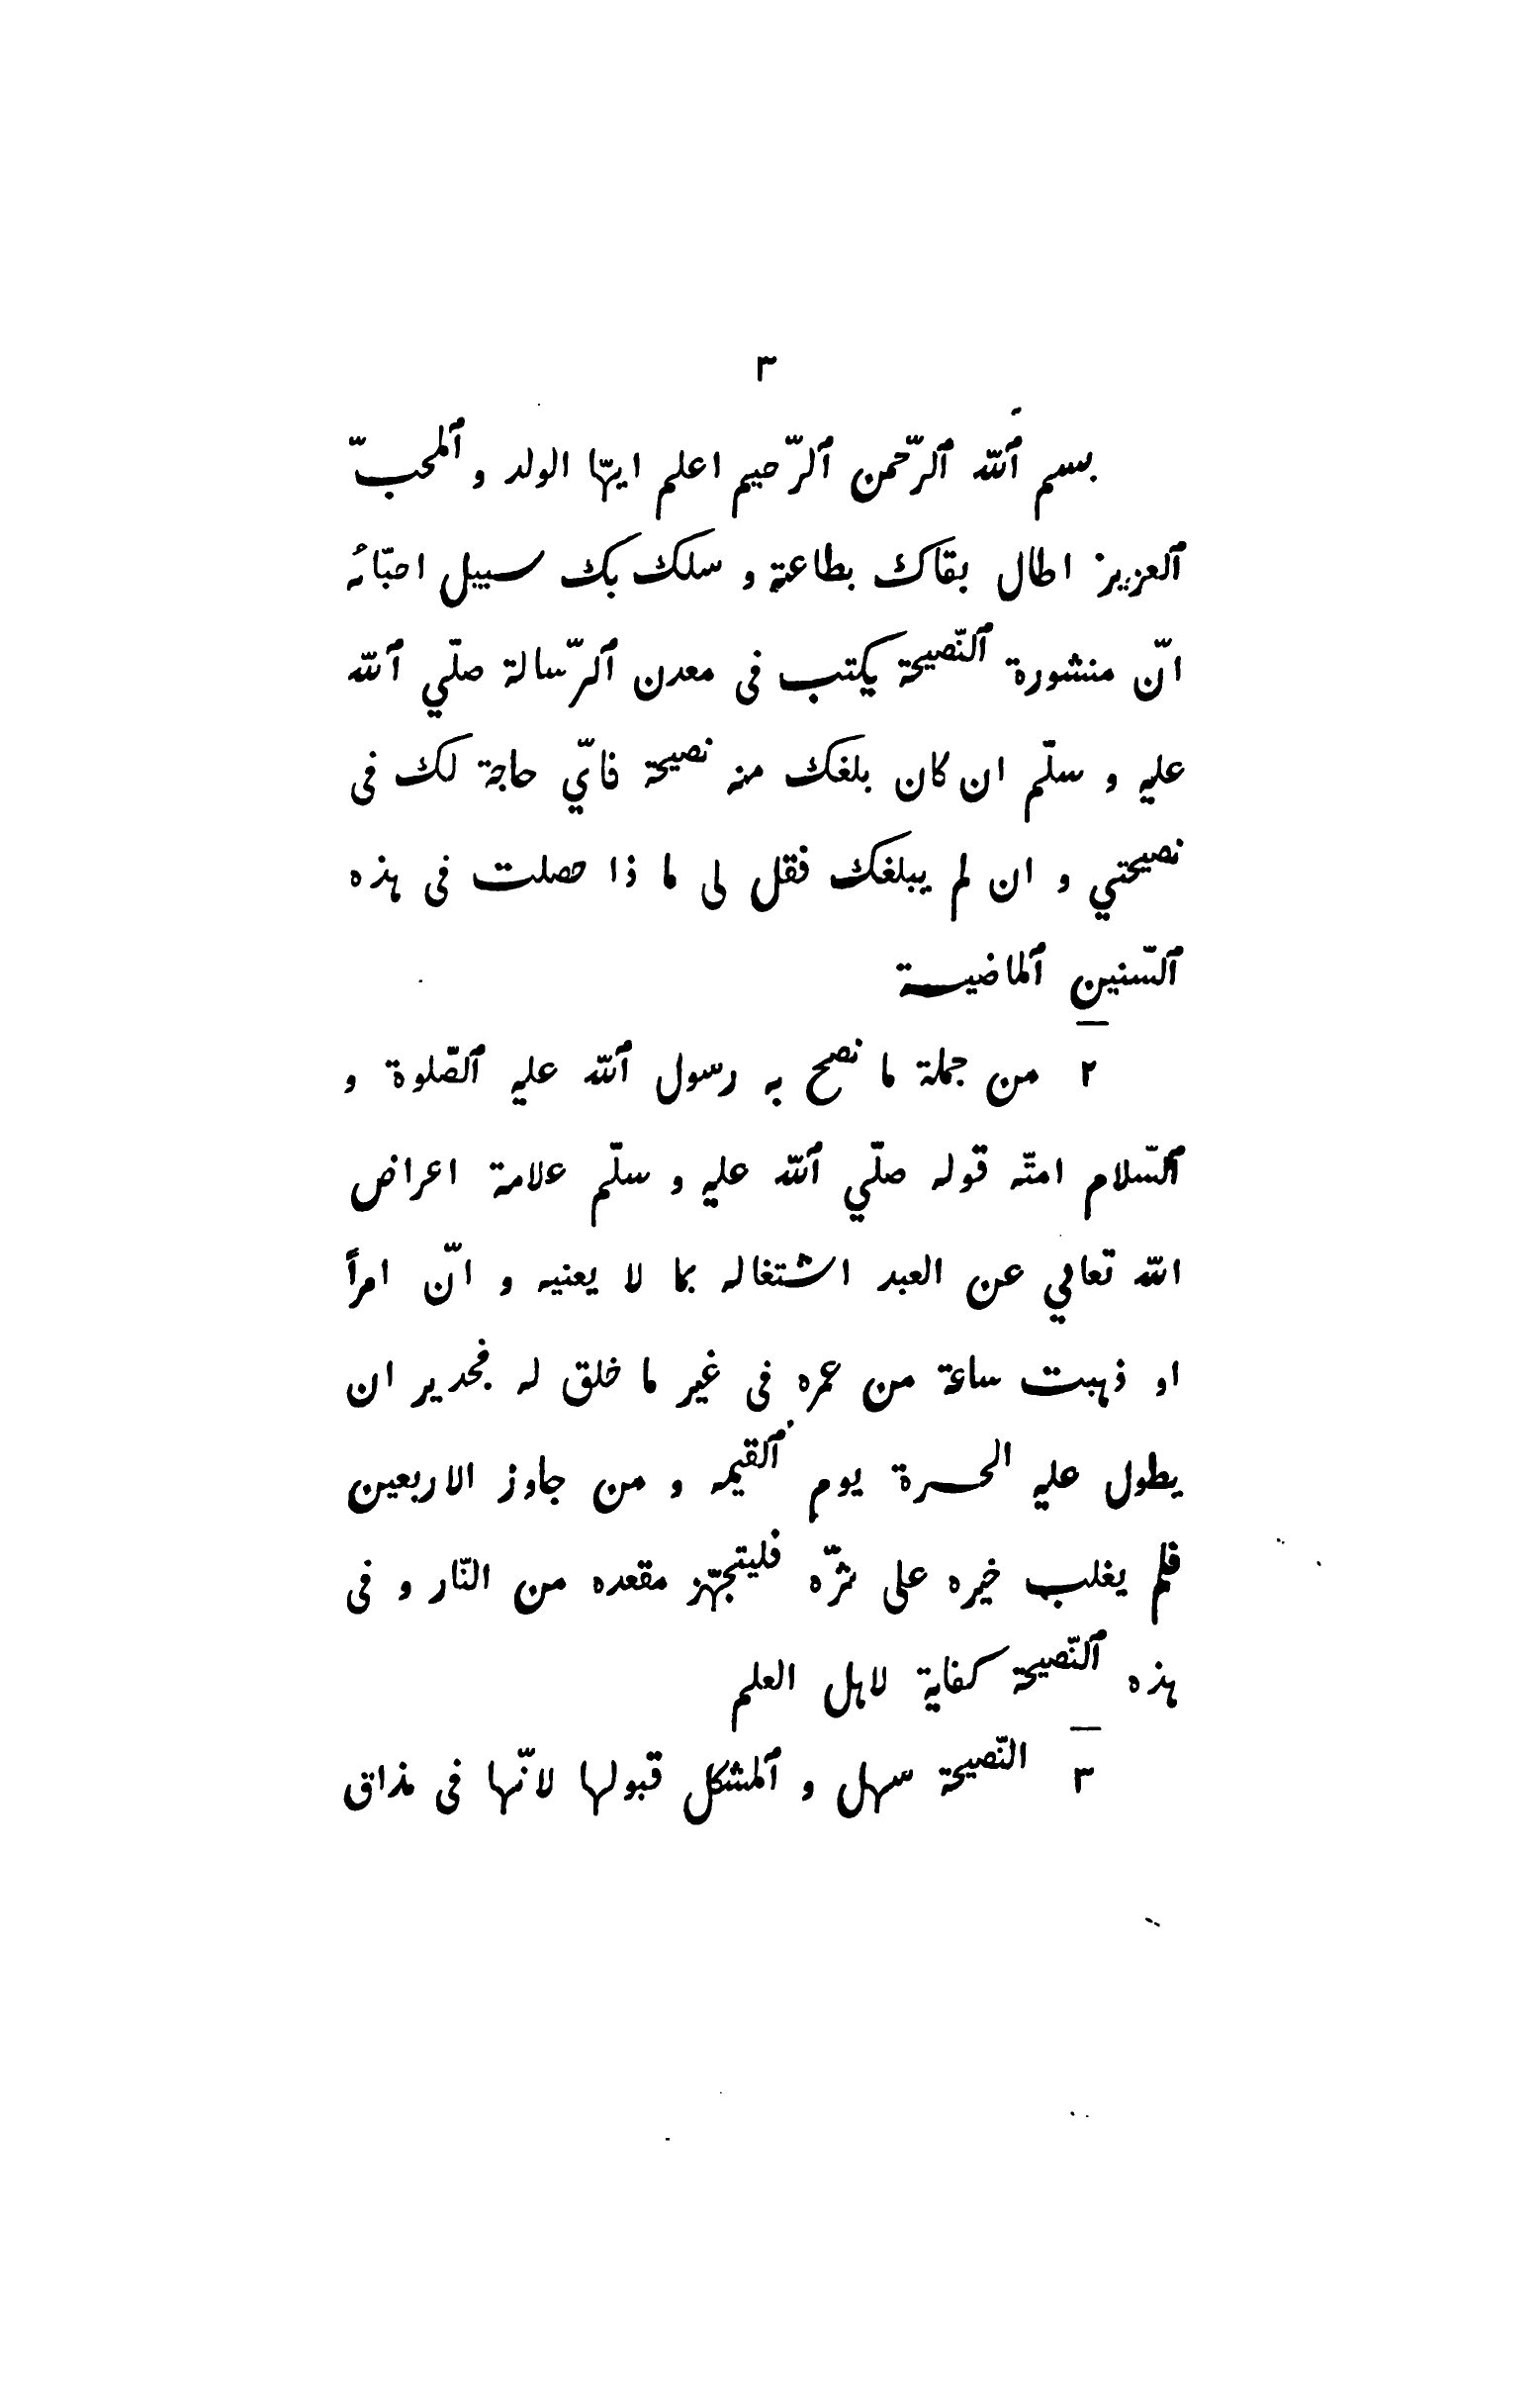 ٣
بسم ٱللّه ٱلرّحمن ٱلرّحيم اعلم ايّها الولد و ٱلمحبّ
ٱلعزيز اطال بقاك بطاعة و سلك بك سبيل احبّائه
انّ منشورة ٱلنّصيحة يكتب فى معدن ٱلرّسالة صلّي ٱللّه
عليه و سلّم ان كان بلغك منه نصيحة فايّ حاجة لك فى
نصيحتي و ان لم يبلغك فقل لى ما ذا حصلت فى هذه
ٱلسّنين ٱلماضية
٢ من جملة ما نصح به رسول ٱللّه عليه ٱلصّلوة و
ٱلسّلام امتّه قوله صلّي ٱللّه عليه و سلّم علامة اعراض
اللّه تعالي عن العبد اشتغاله بما لا يعنيه و انّ امرأً
او ذهبت ساعة من عمره فى غير ما خلق له فجدير ان
يطول عليه الحسرة يوم ٱلقيمه و من جاوز الاربعين
فلم يغلب خيره على شرّه فليتجهّز مقعده من النّار و فى
هذه ٱلنّصيحة كفاية لاهل العلم
٣ النّصيحة سهل و ٱلمشكل قبولها لانّها فى مذاق